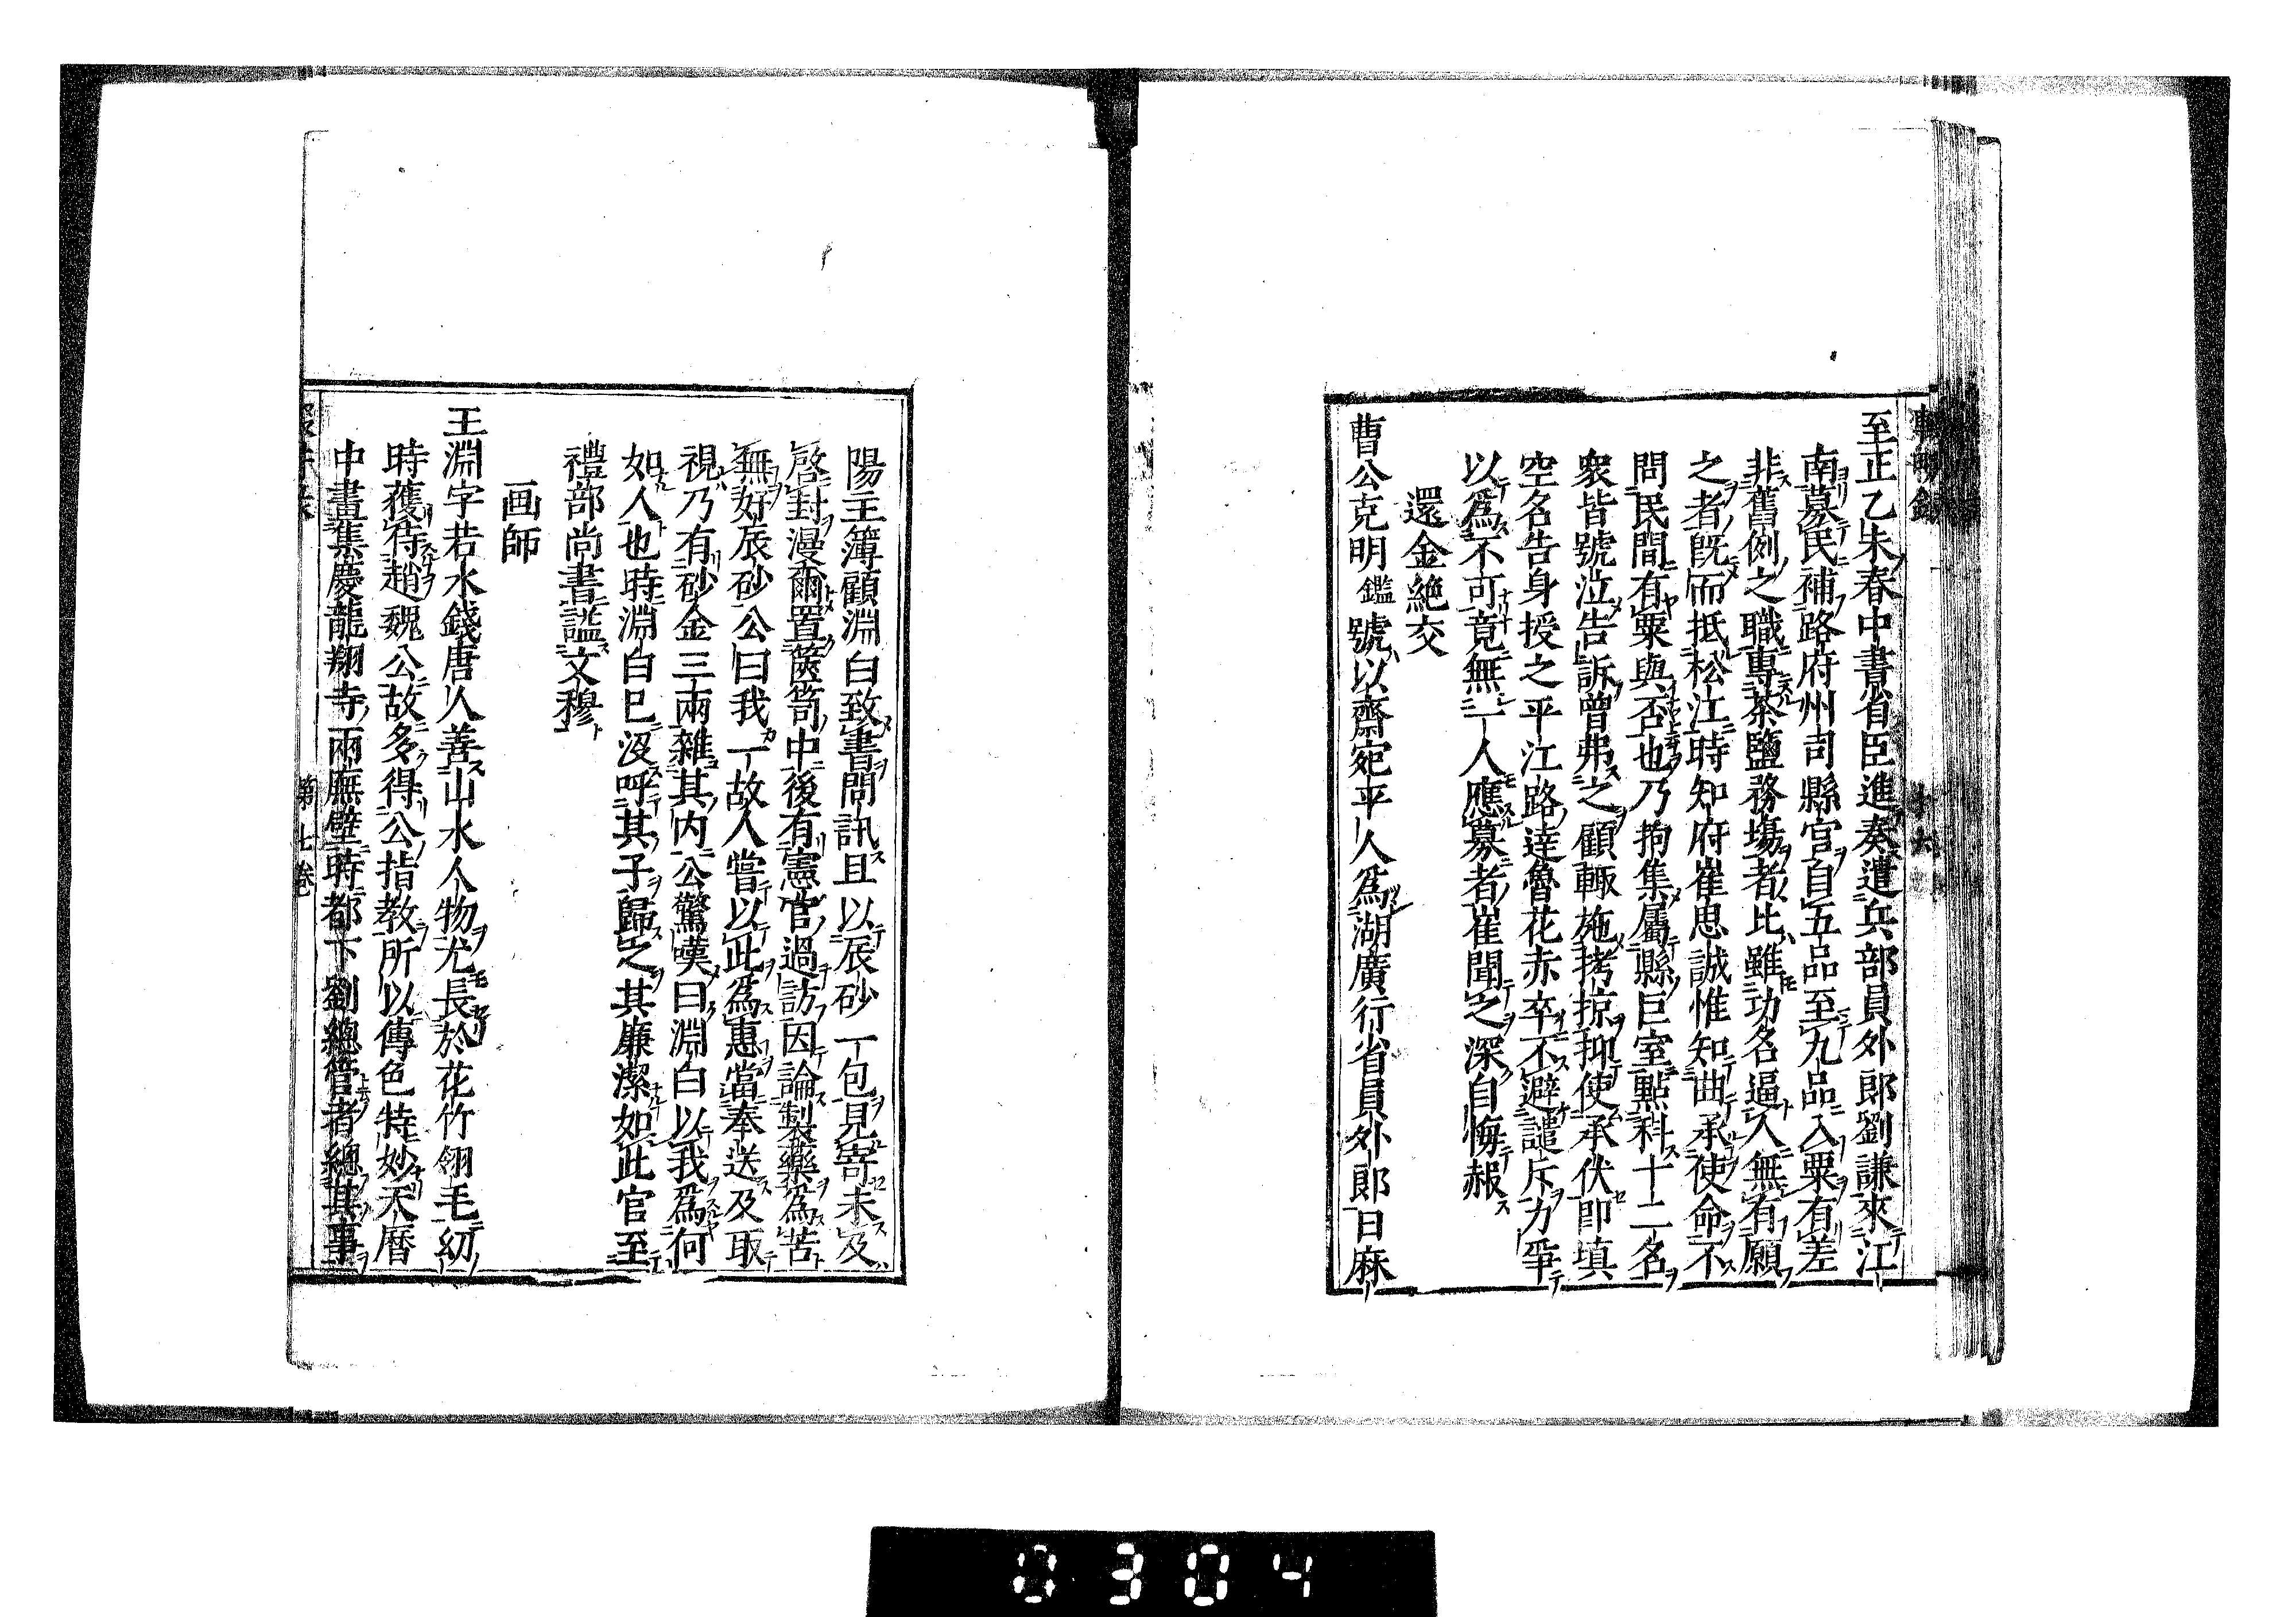 至正乙未春中書省臣進奏遣兵部員外郎劉謙來江
南募民補路府州司縣官自五品至九品入粟有差
非舊例之職專茶鹽務塲者比雖功名逼人無有願
之者旣而抵松江時知府崔思誠惟知曲承使命不
問民間有粟與否也乃拘集屬縣巨室㸃科十二名
衆皆號泣告訴曾弗之顧輙施拷掠抑使承伏即填
空名告身授之平江路達魯花赤卒不避譴斥力爭
以爲不可竟無一人應募者崔聞之深自悔赧
還金絶交
曹公克明鑑號以齋宛平人爲湖廣行省員外郎日麻
陽主簿顧淵白致書問訊且以辰砂一包見寄未及
啓封漫爾置篋笥中後有憲官過訪因論製藥爲苦
無好辰砂公曰我一故人嘗以此爲惠當奉送及取
視乃有砂金三兩雜其内公驚嘆曰淵白以我爲何
如人也時淵白已沒呼其子歸之其廉潔如此官至
禮部尚書諡文穆
画師
王淵字若水錢唐人善山水人物尤長於花竹翎毛幼
時獲待趙魏公故多得公指教所以傳色特妙天曆
中畫集慶龍翔寺兩廡壁時都下劉總管者總其事
第七巻
0304